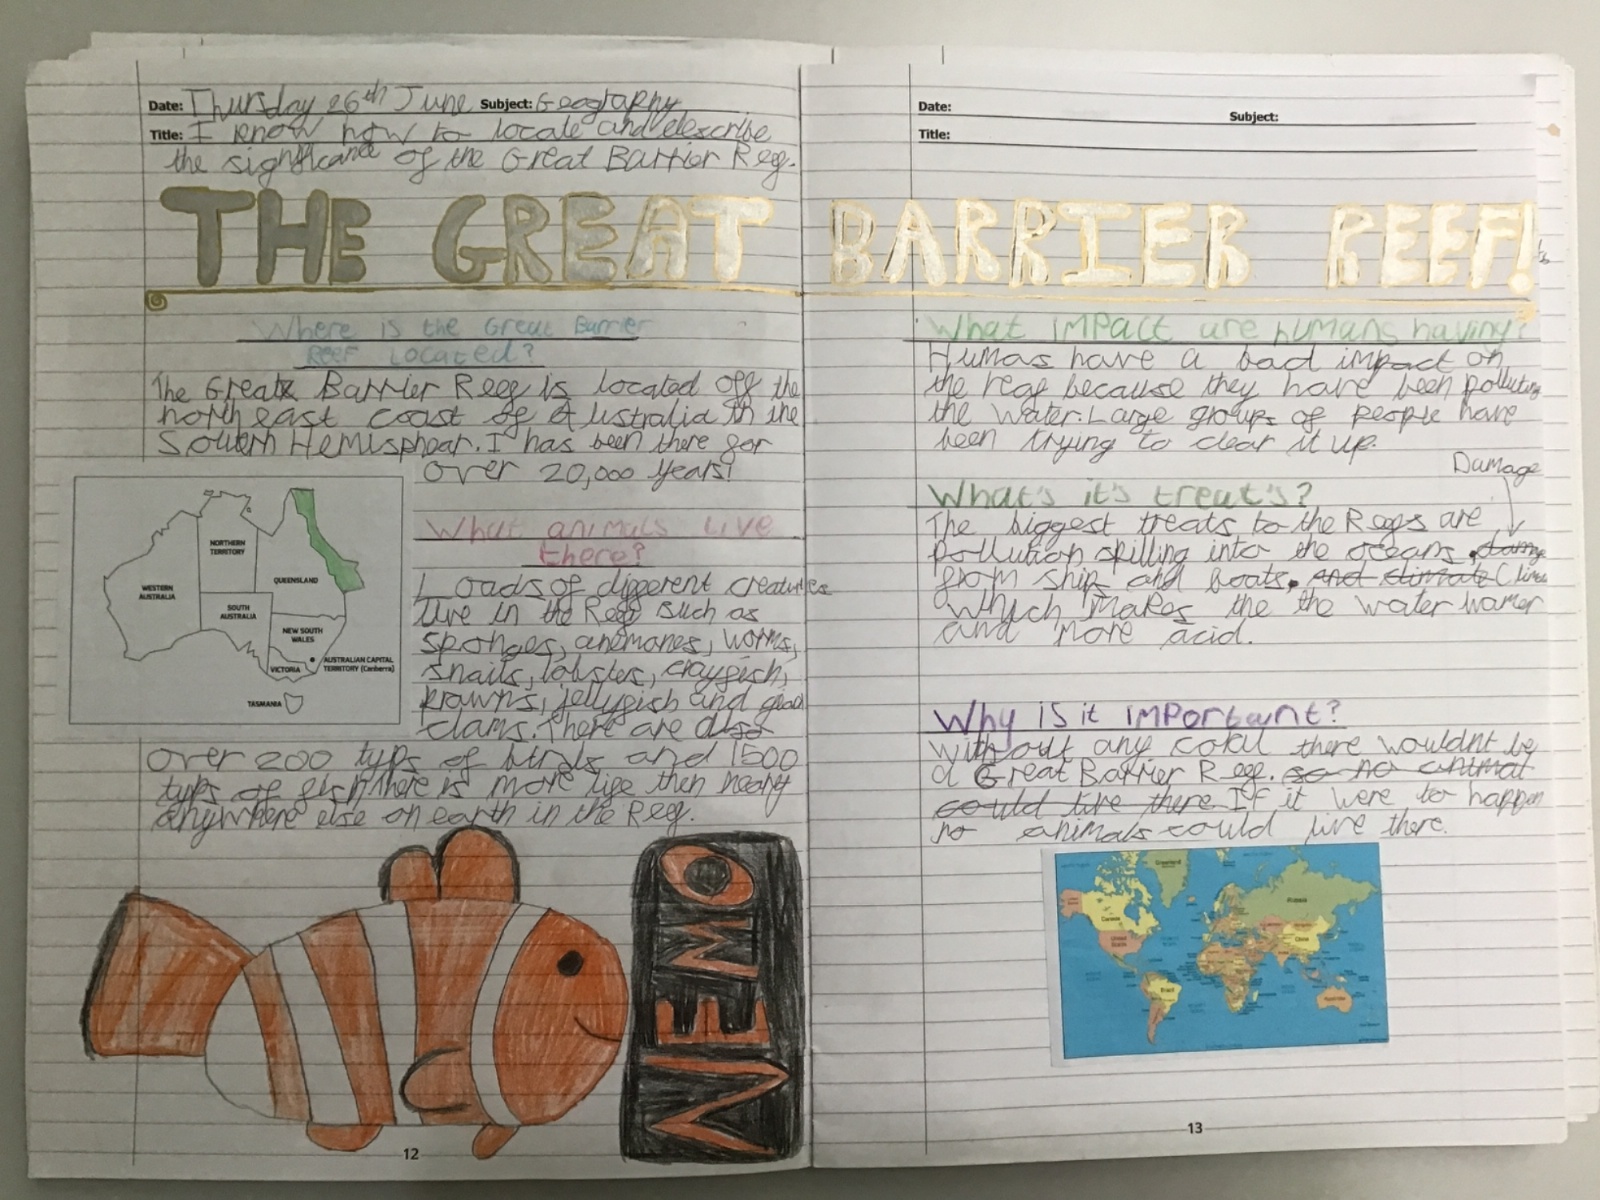 Date: Thursday 26th June Subject: Geography
Title: I know how to locate and describe
the significance of the Great Barrier Reef.
THE GREAT BARRIER REEF!
Where is the Great Barrier
Reef Located?
The Great Barrier Reef is located off the
north east coast of Australia in the
Southern Hemisphear. I has been there for
over 20,000 years!
NORTHERN
TERRITORY
WESTERN
AUSTRALIA
QUEENSLAND
SOUTH
AUSTRALIA
NEW SOUTH
WALES
VICTORIA
AUSTRALIAN CAPITAL
TERRITORY (Canberra)
TASMANIA
What animals Live
there?
Loads of different creatures
live in the Reef such as
sponges, anemones, worms,
snails, lobster, crayfish,
prawns, jellyfish and giad
clams. There are also
over 200 typs of birds and 1500
typs of fish there is more life then neary
anywhere else on earth in the Reef.
NEMO
12
Date:
Subject:
Title:
What Impact are humans having?
Humas have a bad impact on
the reaf because they have been polluting
the water. Large groups of people have
been trying to clear it up.
Damage
What's it's treat's?
The biggest treats to the Reefs are
pollution spilling into the oceans, damage
from ship and boats. and climate
which makes the the water warmer
and more acid.
Why is it important?
without any coral there wouldnt be
a Great Barrier Reef. so no animal
could live there If it were to happen
no animals could live there.
Greenland
Canada
United
States
Brazil
Russia
China
Australia
13